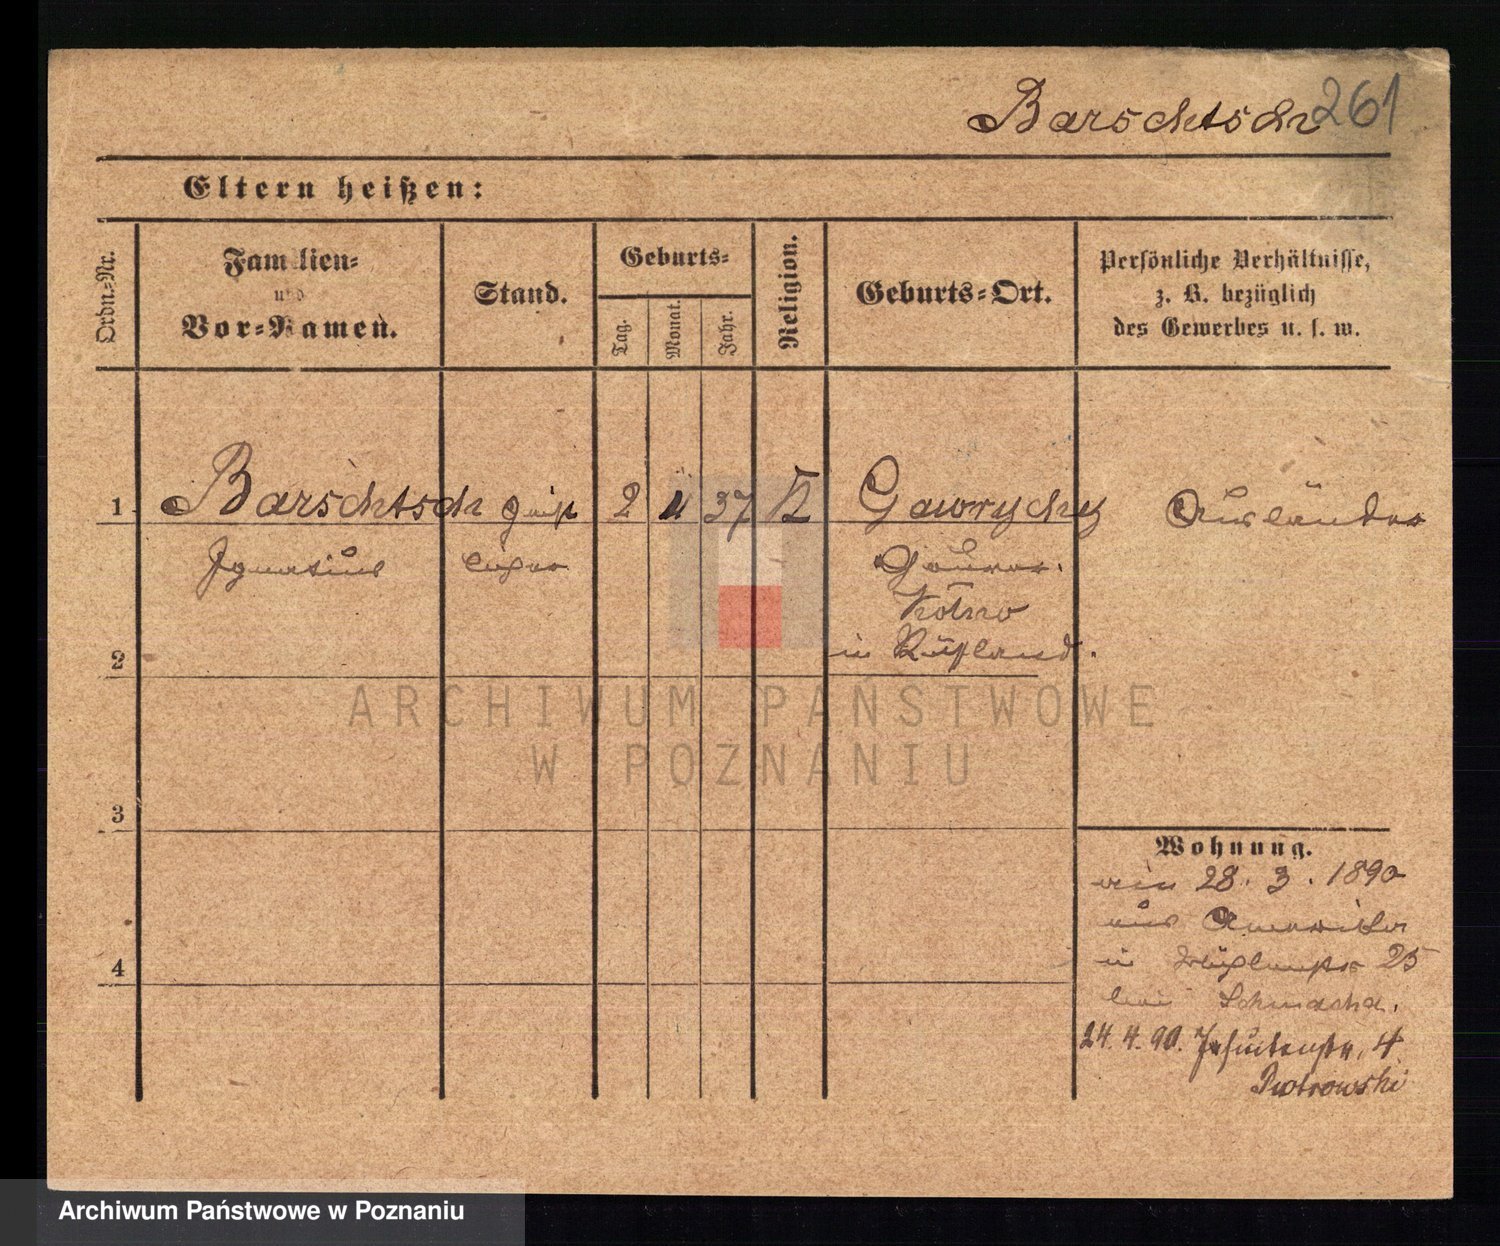 Barschtsch 261
Eltern heißen:
Ordn.-Nr.
Familien-
und
Vor-Namen.
Stand.
Geburts-
Tag.
Monat.
Jahr.
Religion.
Geburts-Ort.
Persönliche Verhältnisse,
z. B. bezüglich
des Gewerbes u. s. w.
1 Barschtsch Geist 2 37 K Gawrychy Ausländer
Ignatius licher Gouver.
Kolno
2 in Rußland.
ARCHIWUM PAŃSTWOWE
W POZNANIU
3
Wohnung.
ein 28. 3. 1890
aus Amerika
4 in 25
bei
24. 4. 90. Jesuitenstr. 4
Piotrowski
Archiwum Państwowe w Poznaniu